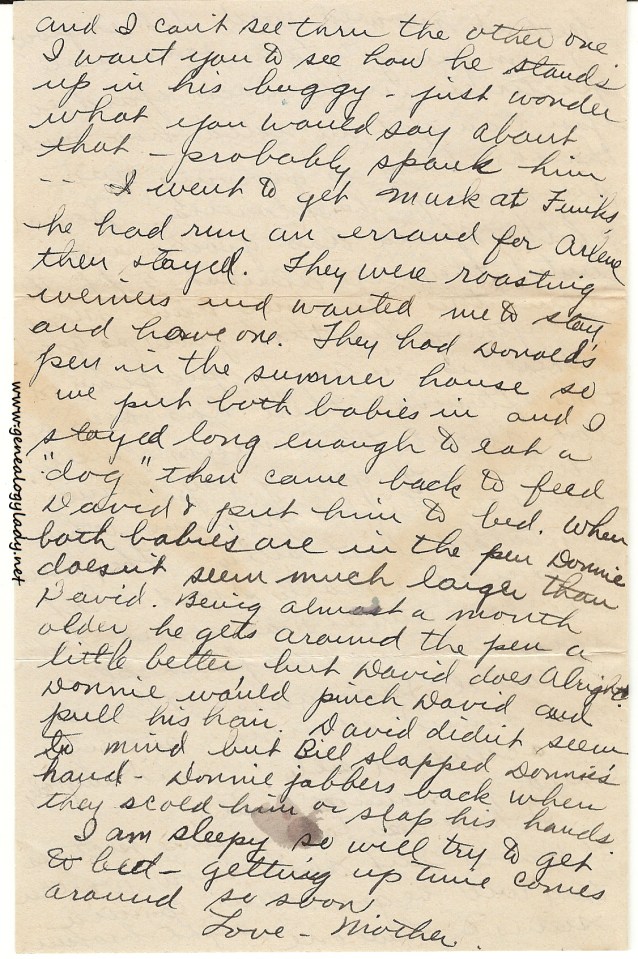 and I can't see thru the other one
I want you to see how he stands
up in his buggy - just wonder
what you would say about
that - probably spank him
-- I went to get Mark at Funk's,
he had run an errand for Arlene
then stayed. They were roasting
weiners and wanted me to stay
and have one. They had Donald's
pen in the summer house so
we put both babies in and I
stayed long enough to eat a
"dog" then came back to feed
David & put him to bed. When
both babies are in the pen Donnie
doesn't seem much larger than
David. Being almost a month
older he gets around the pen a
little better but David does alright.
Donnie would pinch David and
pull his hair. David didn't seem
to mind but Bill slapped Donnie's
hand - Donnie jabbers back when
they scold him or slap his hands.
I am sleepy so will try to get
to bed - getting up time comes
around so soon
Love - Mother.
www.genealogylady.net